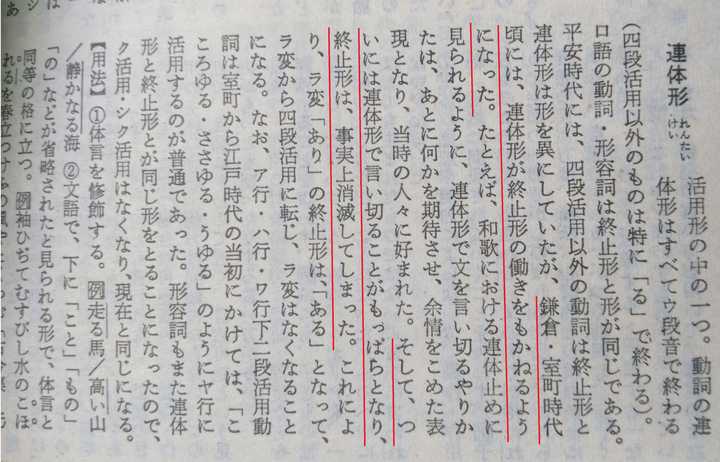 連体形
れんたい
けい
活用形の中の一つ。動詞の連
体形はすべてウ段音で終わる
(四段活用以外のものは特に「る」で終わる)。
口語の動詞・形容詞は終止形と形が同じである。
平安時代には、四段活用以外の動詞は終止形と
連体形は形を異にしていたが、鎌倉・室町時代
頃には、連体形が終止形の働きをもかねるよう
になった。たとえば、和歌における連体止めに
見られるように、連体形で文を言い切るやりか
たは、あとに何かを期待させ、余情をこめた表
現となり、当時の人々に好まれた。そして、つ
いには連体形で言い切ることがもっぱらとなり、
終止形は、事実上消滅してしまった。これによ
り、ラ変「あり」の終止形は、「ある」となって、
ラ変から四段活用に転じ、ラ変はなくなること
になる。なお、ア行・ハ行・ワ行下二段活用動
詞は室町から江戸時代の当初にかけては、「こ
ころゆる・ささゆる・うゆる」のようにヤ行に
活用するのが普通であった。形容詞もまた連体
形と終止形とが同じ形をとることになったので、
ク活用・シク活用はなくなり、現在と同じになる。
【用法】①体言を修飾する。例走る馬/高い山
/静かなる海 ②文語で、下に「こと」「もの」
「の」などが省略されたと見られる形で、体言と
同等の格に立つ。例袖ひぢてむすびし水のこほ
れるを春立つけふの風や